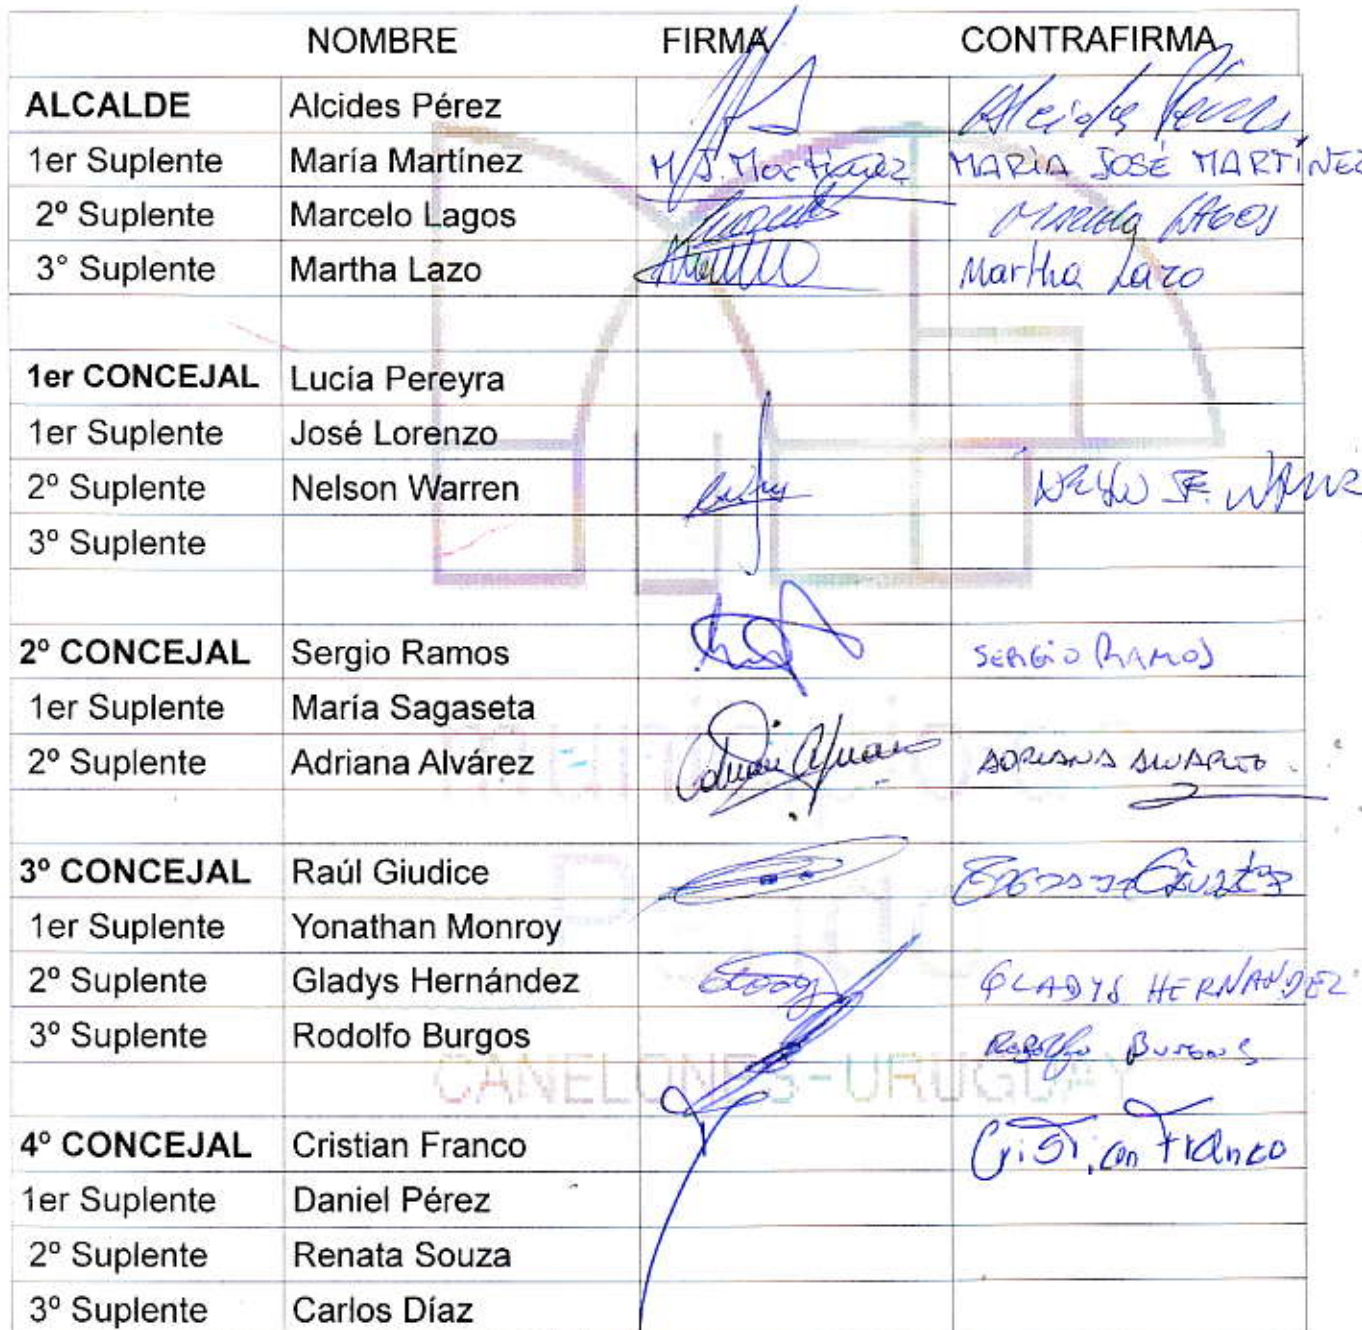 NOMBRE FIRMA CONTRAFIRMA
ALCALDE Alcides Pérez Alcides Pérez
1er Suplente María Martínez M J. Martínez MARÍA JOSÉ MARTÍNEZ
2º Suplente Marcelo Lagos LAGOS
3° Suplente Martha Lazo Martha Lazo
1er CONCEJAL Lucía Pereyra
1er Suplente José Lorenzo
2º Suplente Nelson Warren
3º Suplente
2º CONCEJAL Sergio Ramos SERGIO RAMOS
1er Suplente María Sagaseta
2º Suplente Adriana Alvárez ADRIANA
3º CONCEJAL Raúl Giudice
1er Suplente Yonathan Monroy
2º Suplente Gladys Hernández GLADYS HERNANDEZ
3º Suplente Rodolfo Burgos Rodolfo Burgos
CANELONES-URUGUAY
4º CONCEJAL Cristian Franco Cristian Franco
1er Suplente Daniel Pérez
2º Suplente Renata Souza
3º Suplente Carlos Díaz